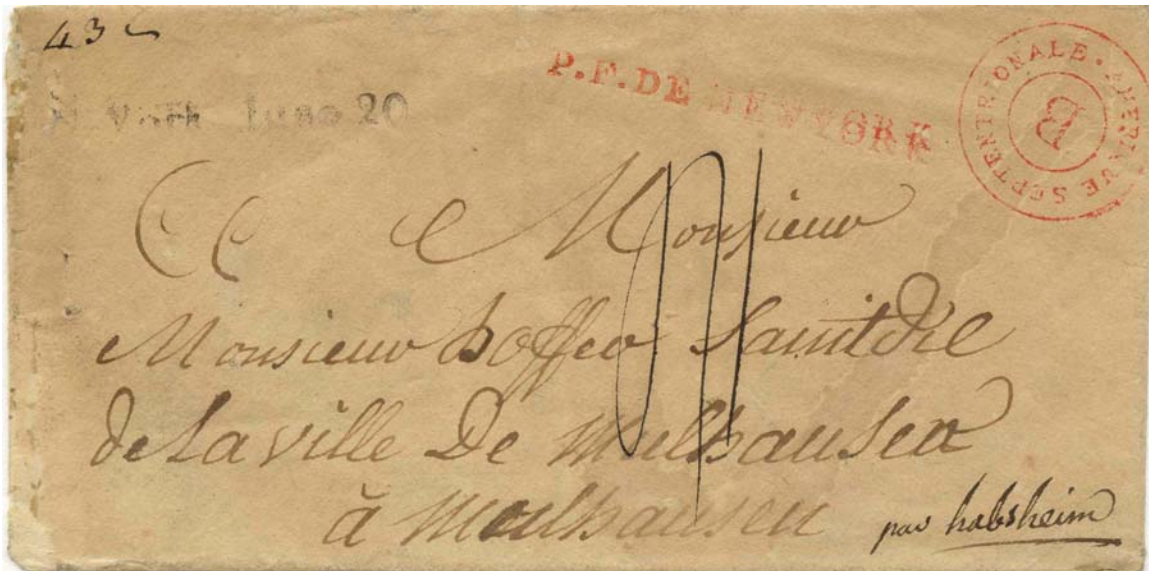 43
York June 20
P.F. DE NEW YORK
AMERIQUE SEPTENTRIONALE · B
Monsieur
Monsieur hoffer
de La ville De Mulhausen
à Mulhausen
par habsheim